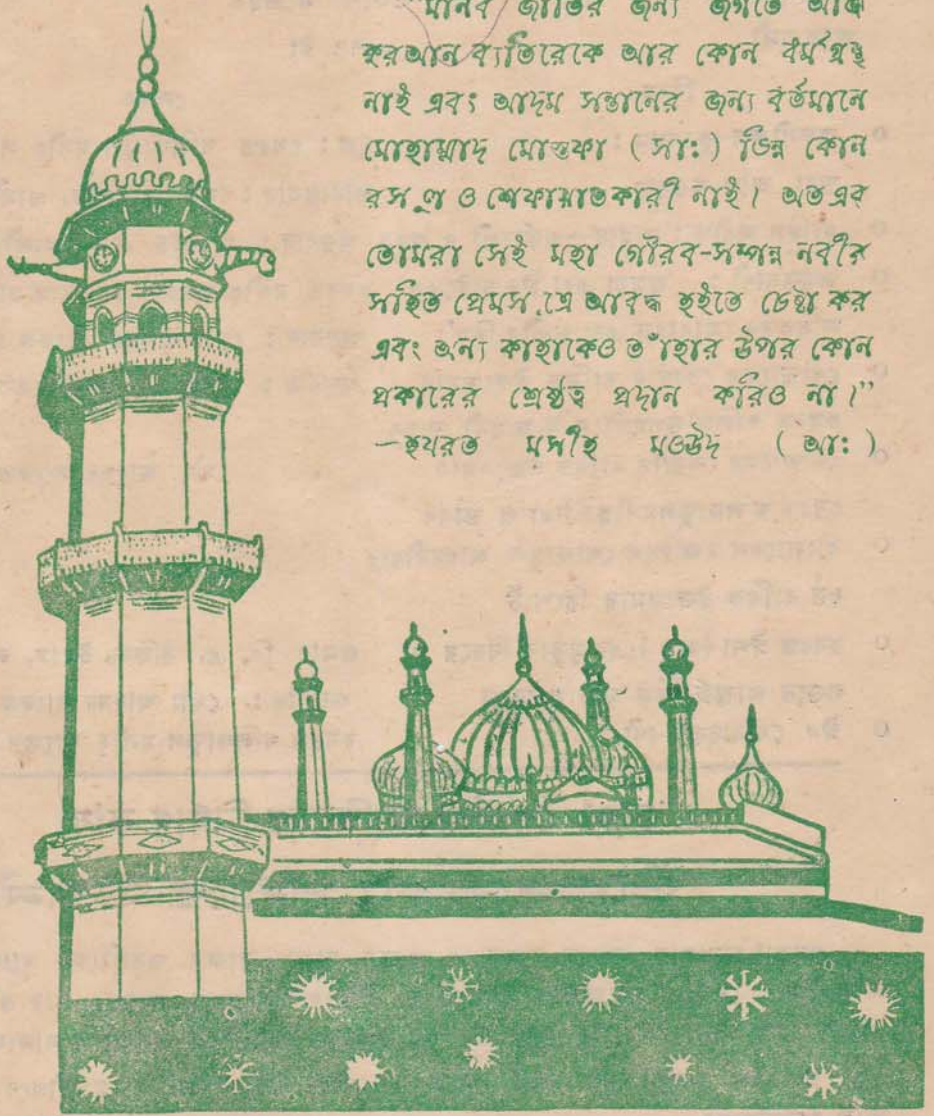 মানব জাতির জন্য জগতে আজ
কুরআন ব্যতিরেকে আর কোন ধর্ম গ্রন্থ
নাই এবং আদম সন্তানের জন্য বর্তমানে
মোহাম্মাদ মোস্তফা ( সাঃ ) ভিন্ন কোন
রসূল ও শেফায়াতকারী নাই। অতএব
তোমরা সেই মহা গৌরব-সম্পন্ন নবীর
সহিত প্রেমসূত্রে আবদ্ধ হইতে চেষ্টা কর
এবং অন্য কাহাকেও তাঁহার উপর কোন
প্রকারের শ্রেষ্ঠত্ব প্রদান করিও না।”
—হযরত মসীহ মওউদ ( আঃ )